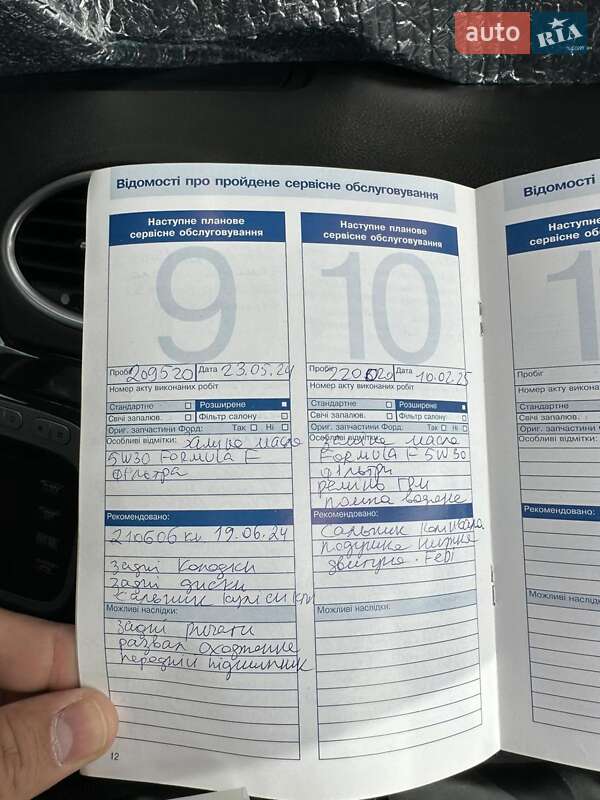 auto RIA
.com
Відомості про пройдене сервісне обслуговування
Наступне планове
сервісне обслуговування
9
Пробіг 209520 Дата 23.05.24
Номер акту виконаних робіт
Стандартне Розширене
Свічі запалюв. Фільтр салону
Ориг. запчастини Форд: Так Ні
Особливі відмітки: масла
5W30 FORMULA F
фільтра
Рекомендовано:
210606 км 19.06.24
задні колодки
задні диски
сальник
Можливі наслідки:
задні ричаги
развал сходження
передній підшипник
12
Наступне планове
сервісне обслуговування
10
Пробіг 220020 Дата 10.02.25
Номер акту виконаних робіт
Стандартне Розширене
Свічі запалюв. Фільтр салону
Ориг. запчастини Форд: Так Ні
Особливі відмітки: масла
FORMULA F 5W30
фільтри
ремінь ГРМ
помпа водяна
Рекомендовано:
сальник
подушка нижня
двигуна.
Можливі наслідки:
Відомості
Наступне
сервісне об
1
Пробіг
Номер акту викон
Стандартне
Свічі запалюв.
Ориг. запчастин
Особливі відмітк
Рекомендован
Можливі насл